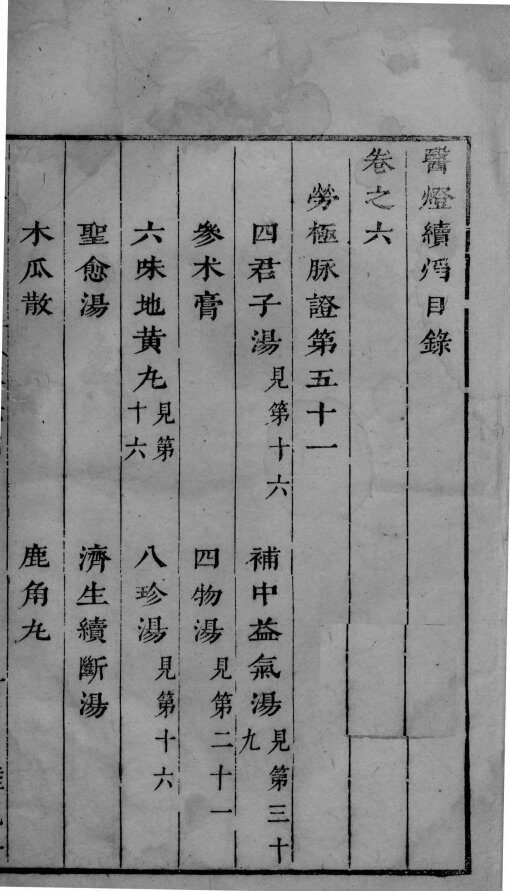 醫燈續焰目錄
卷之六
勞極脉證第五十一
四君子湯見第十六 補中益氣湯見第三十九
參术膏 四物湯見第二十一
六味地黃丸見第十六 八珍湯見第十六
聖愈湯 濟生續斷湯
木瓜散 鹿角丸